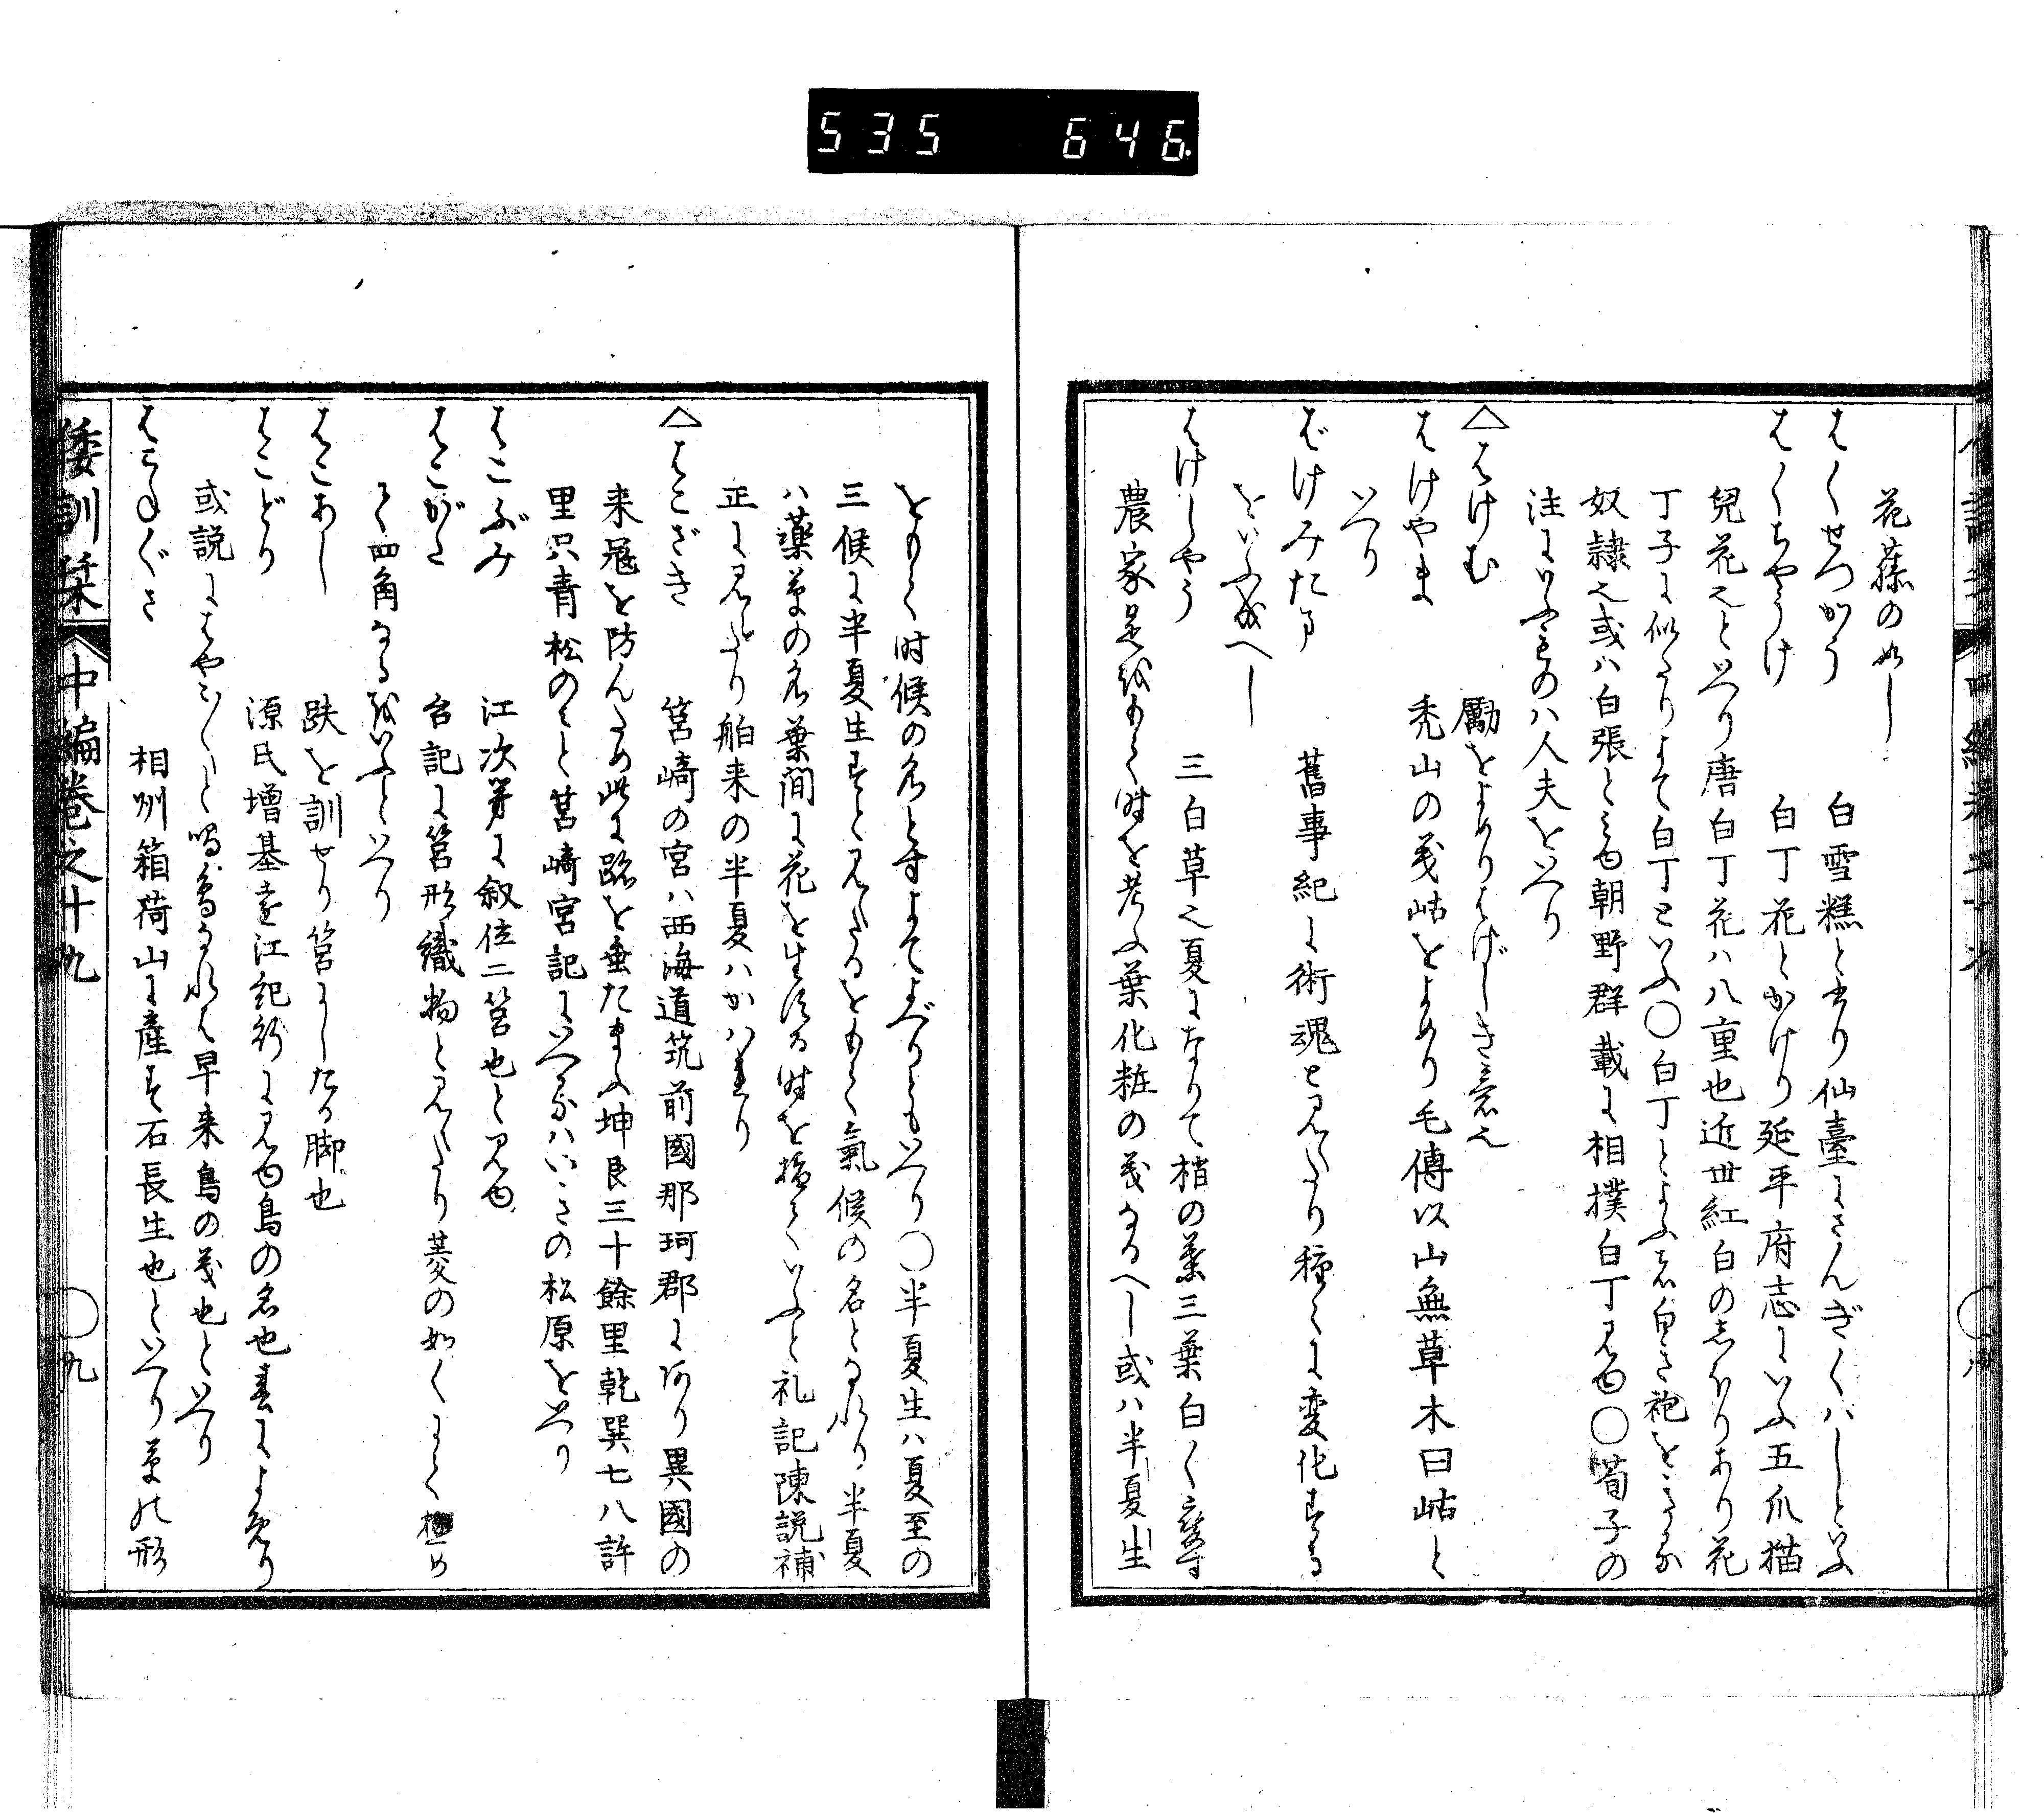 535 646
花蘂の如し
はくせつかう 白雪糕と書り仙臺にさんぎくハしといふ
はくちやうけ 白丁花とかけり延平府志にいふ五爪猫
兒花也といへり唐白丁花ハ八重也近世紅白のしぼりあり花
丁子に似たりよて白丁といふ〇白丁とよふハ白き袍をきる
奴隷也或ハ白張とも朝野群載に相撲白丁見ゆ〇荀子の
注にいふものハ人夫をいへり
△はけむ 勵をよめりはげしき意也
はけやま 禿山の義岵をよめり毛傳以山無草木曰岵と
いへり
ばけみたま 舊事紀に術魂と見えたり種々に変化する
をいふ成へし
はけしやう 三白草也夏になりて梢の葉三葉白く変す
農家是をもて時を考ふ葉化粧の義なるへし或ハ半夏生
をもて時候の名とすよてよべりともいへり〇半夏生ハ夏至の
三候に半夏生すと見えたるをもて氣候の名となれり半夏
ハ藥草の名葉間に花を生する時を指ていふと礼記陳説補
正に見えたり舶来の半夏ハかハれり
△はこざき 筥崎の宮ハ西海道筑前國那珂郡にあり異國の
来冦を防んため此に跡を垂たまふ坤艮三十餘里乾巽七八許
里只青松のみと筥崎宮記にいへるハいきの松原をいへり
はこぶみ 江次第に叙位二筥也と見ゆ
はこがた 台記に筥形織物と見えたり菱の如くにて極め
て四角なるをいふといへり
はこあし 趺を訓せり筥にしたる脚也
はこどり 源氏増基遠江紀行に見ゆ鳥の名也春によめり
或説にはやこ〱と鳴鳥なれハ早来鳥の義也といへり
はこねぐさ 相州箱荷山に產す石長生也といへり草の形
倭訓栞 中編巻之十九 〇九